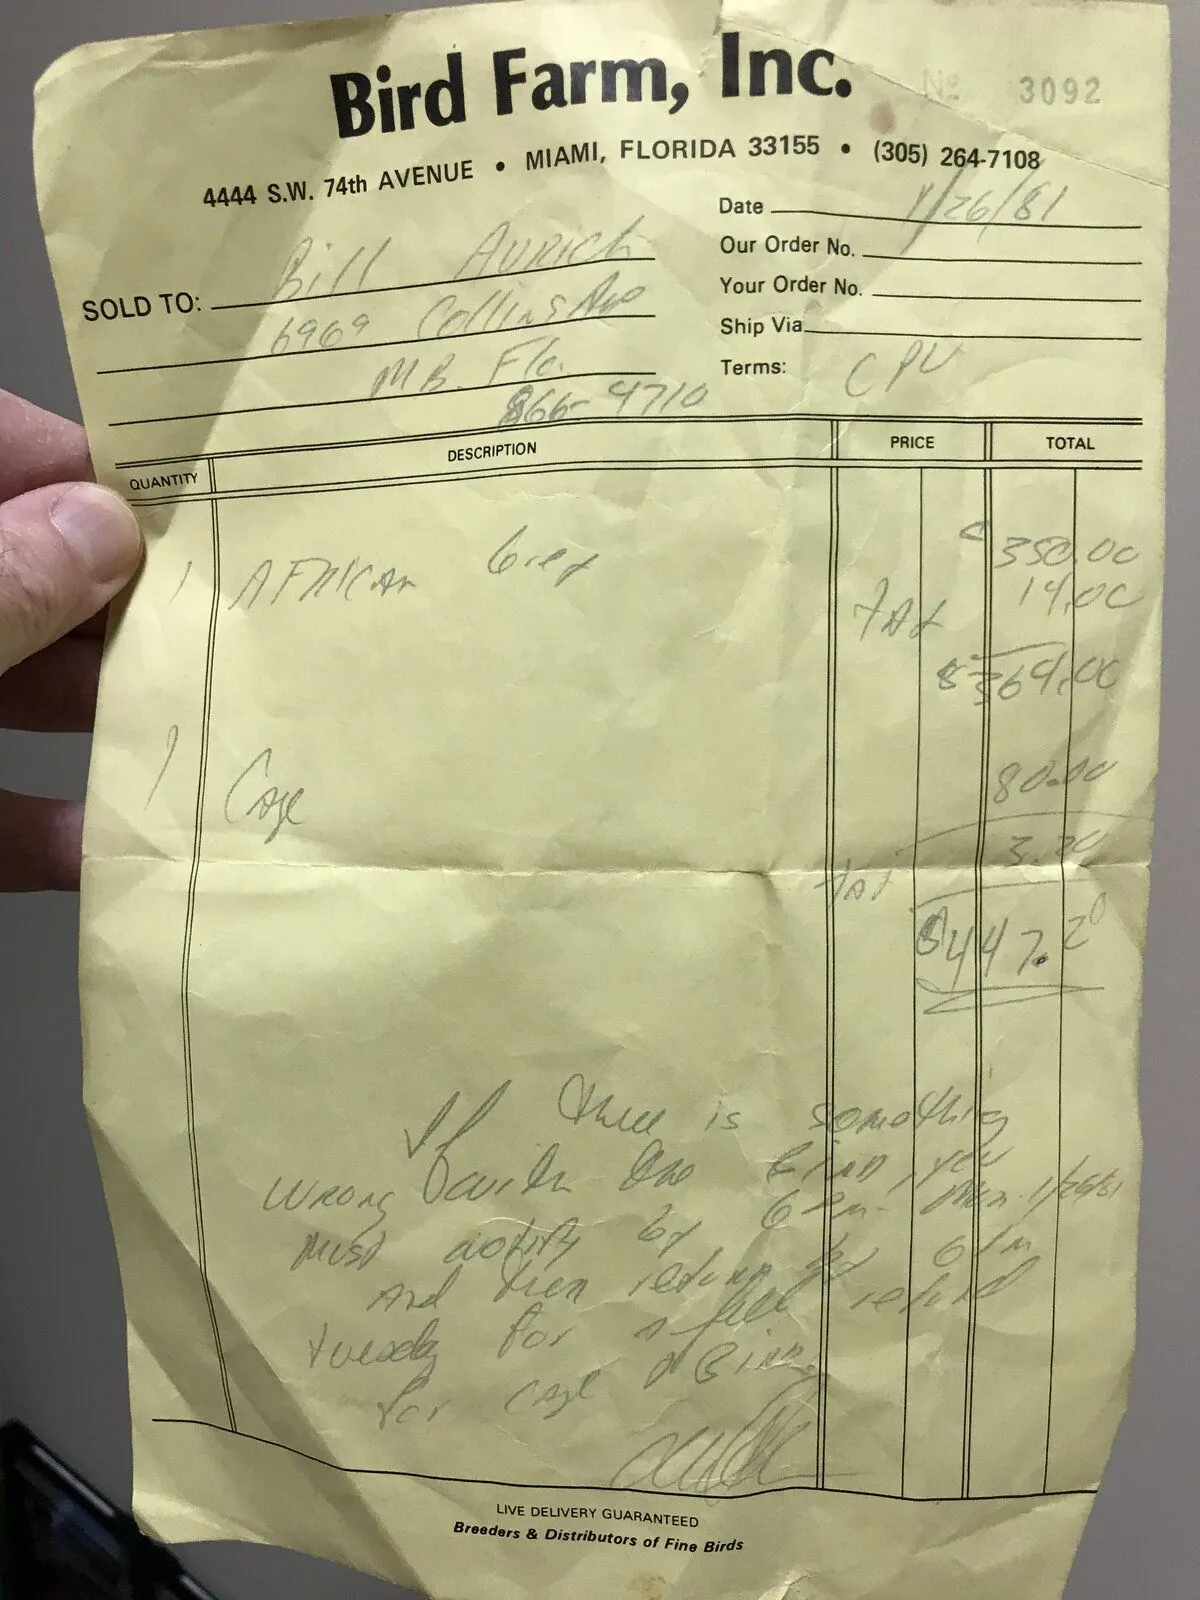 Bird Farm, Inc.
Nº 3092
4444 S.W. 74th AVENUE • MIAMI, FLORIDA 33155 • (305) 264-7108
Date 1/26/81
Our Order No.
Your Order No.
Ship Via
Terms: CPU
SOLD TO: Bill Aurich
6969 Collins Ave
M.B. Fla.
866-4710
QUANTITY DESCRIPTION PRICE TOTAL
1 AFRICAN Grey $350.00
TAX 14.00
$364.00
1 Cage 80.00
tax 3.20
$447.20
If there is something
wrong with the Bird, you
must notify by 6 pm. Mon. 1/26/81
and then return by 6 pm
tuesday for a full refund
for cage & Bird.
LIVE DELIVERY GUARANTEED
Breeders & Distributors of Fine Birds